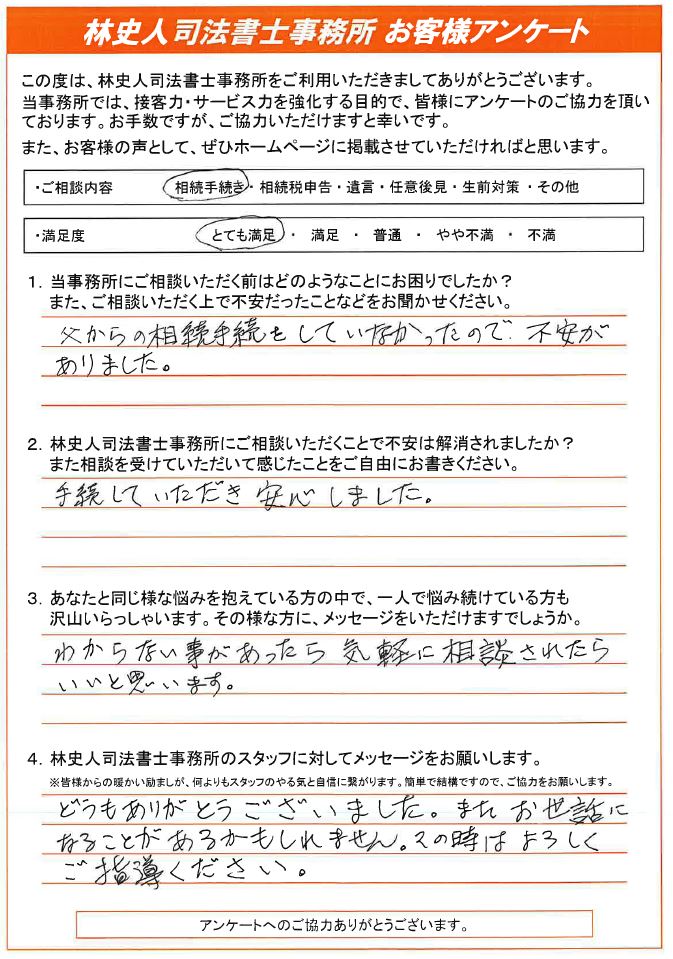 林史人司法書士事務所 お客様アンケート
この度は、林史人司法書士事務所をご利用いただきましてありがとうございます。
当事務所では、接客力・サービス力を強化する目的で、皆様にアンケートのご協力を頂い
ております。お手数ですが、ご協力いただけますと幸いです。
また、お客様の声として、ぜひホームページに掲載させていただければと思います。
・ご相談内容 相続手続き・相続税申告・遺言・任意後見・生前対策・その他
・満足度 とても満足 ・ 満足 ・ 普通 ・ やや不満 ・ 不満
1. 当事務所にご相談いただく前はどのようなことにお困りでしたか?
また、ご相談いただく上で不安だったことなどをお聞かせください。
父からの相続手続をしていなかったので、不安が
ありました。
2. 林史人司法書士事務所にご相談いただくことで不安は解消されましたか?
また相談を受けていただいて感じたことをご自由にお書きください。
手続していただき安心しました。
3. あなたと同じ様な悩みを抱えている方の中で、一人で悩み続けている方も
沢山いらっしゃいます。その様な方に、メッセージをいただけますでしょうか。
わからない事があったら気軽に相談されたら
いいと思います。
4. 林史人司法書士事務所のスタッフに対してメッセージをお願いします。
※皆様からの暖かい励ましが、何よりもスタッフのやる気と自信に繋がります。簡単で結構ですので、ご協力をお願いします。
どうもありがとうございました。またお世話に
なることがあるかもしれません。その時はよろしく
ご指導ください。
アンケートへのご協力ありがとうございます。